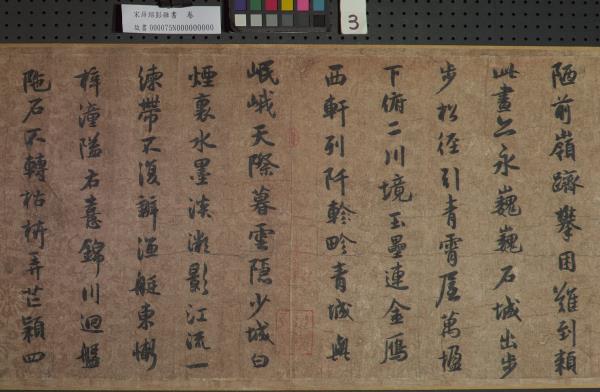 宋薛紹彭雜書 卷
故書000075N000000000
3
陋前嶺躋攀困難到頼
此晝亦永巍巍石城出步
步松徑引青霄屋萬楹
下俯二川境玉壘連金鴈
西軒列阡畛青城與
岷峨天際暮雲隱少城白
煙裏水墨淡瀲影江流一
練帶不復辨漁艇東慚
梓潼隘右憙錦川迴盤
陁石不轉枯枿弄芒穎四